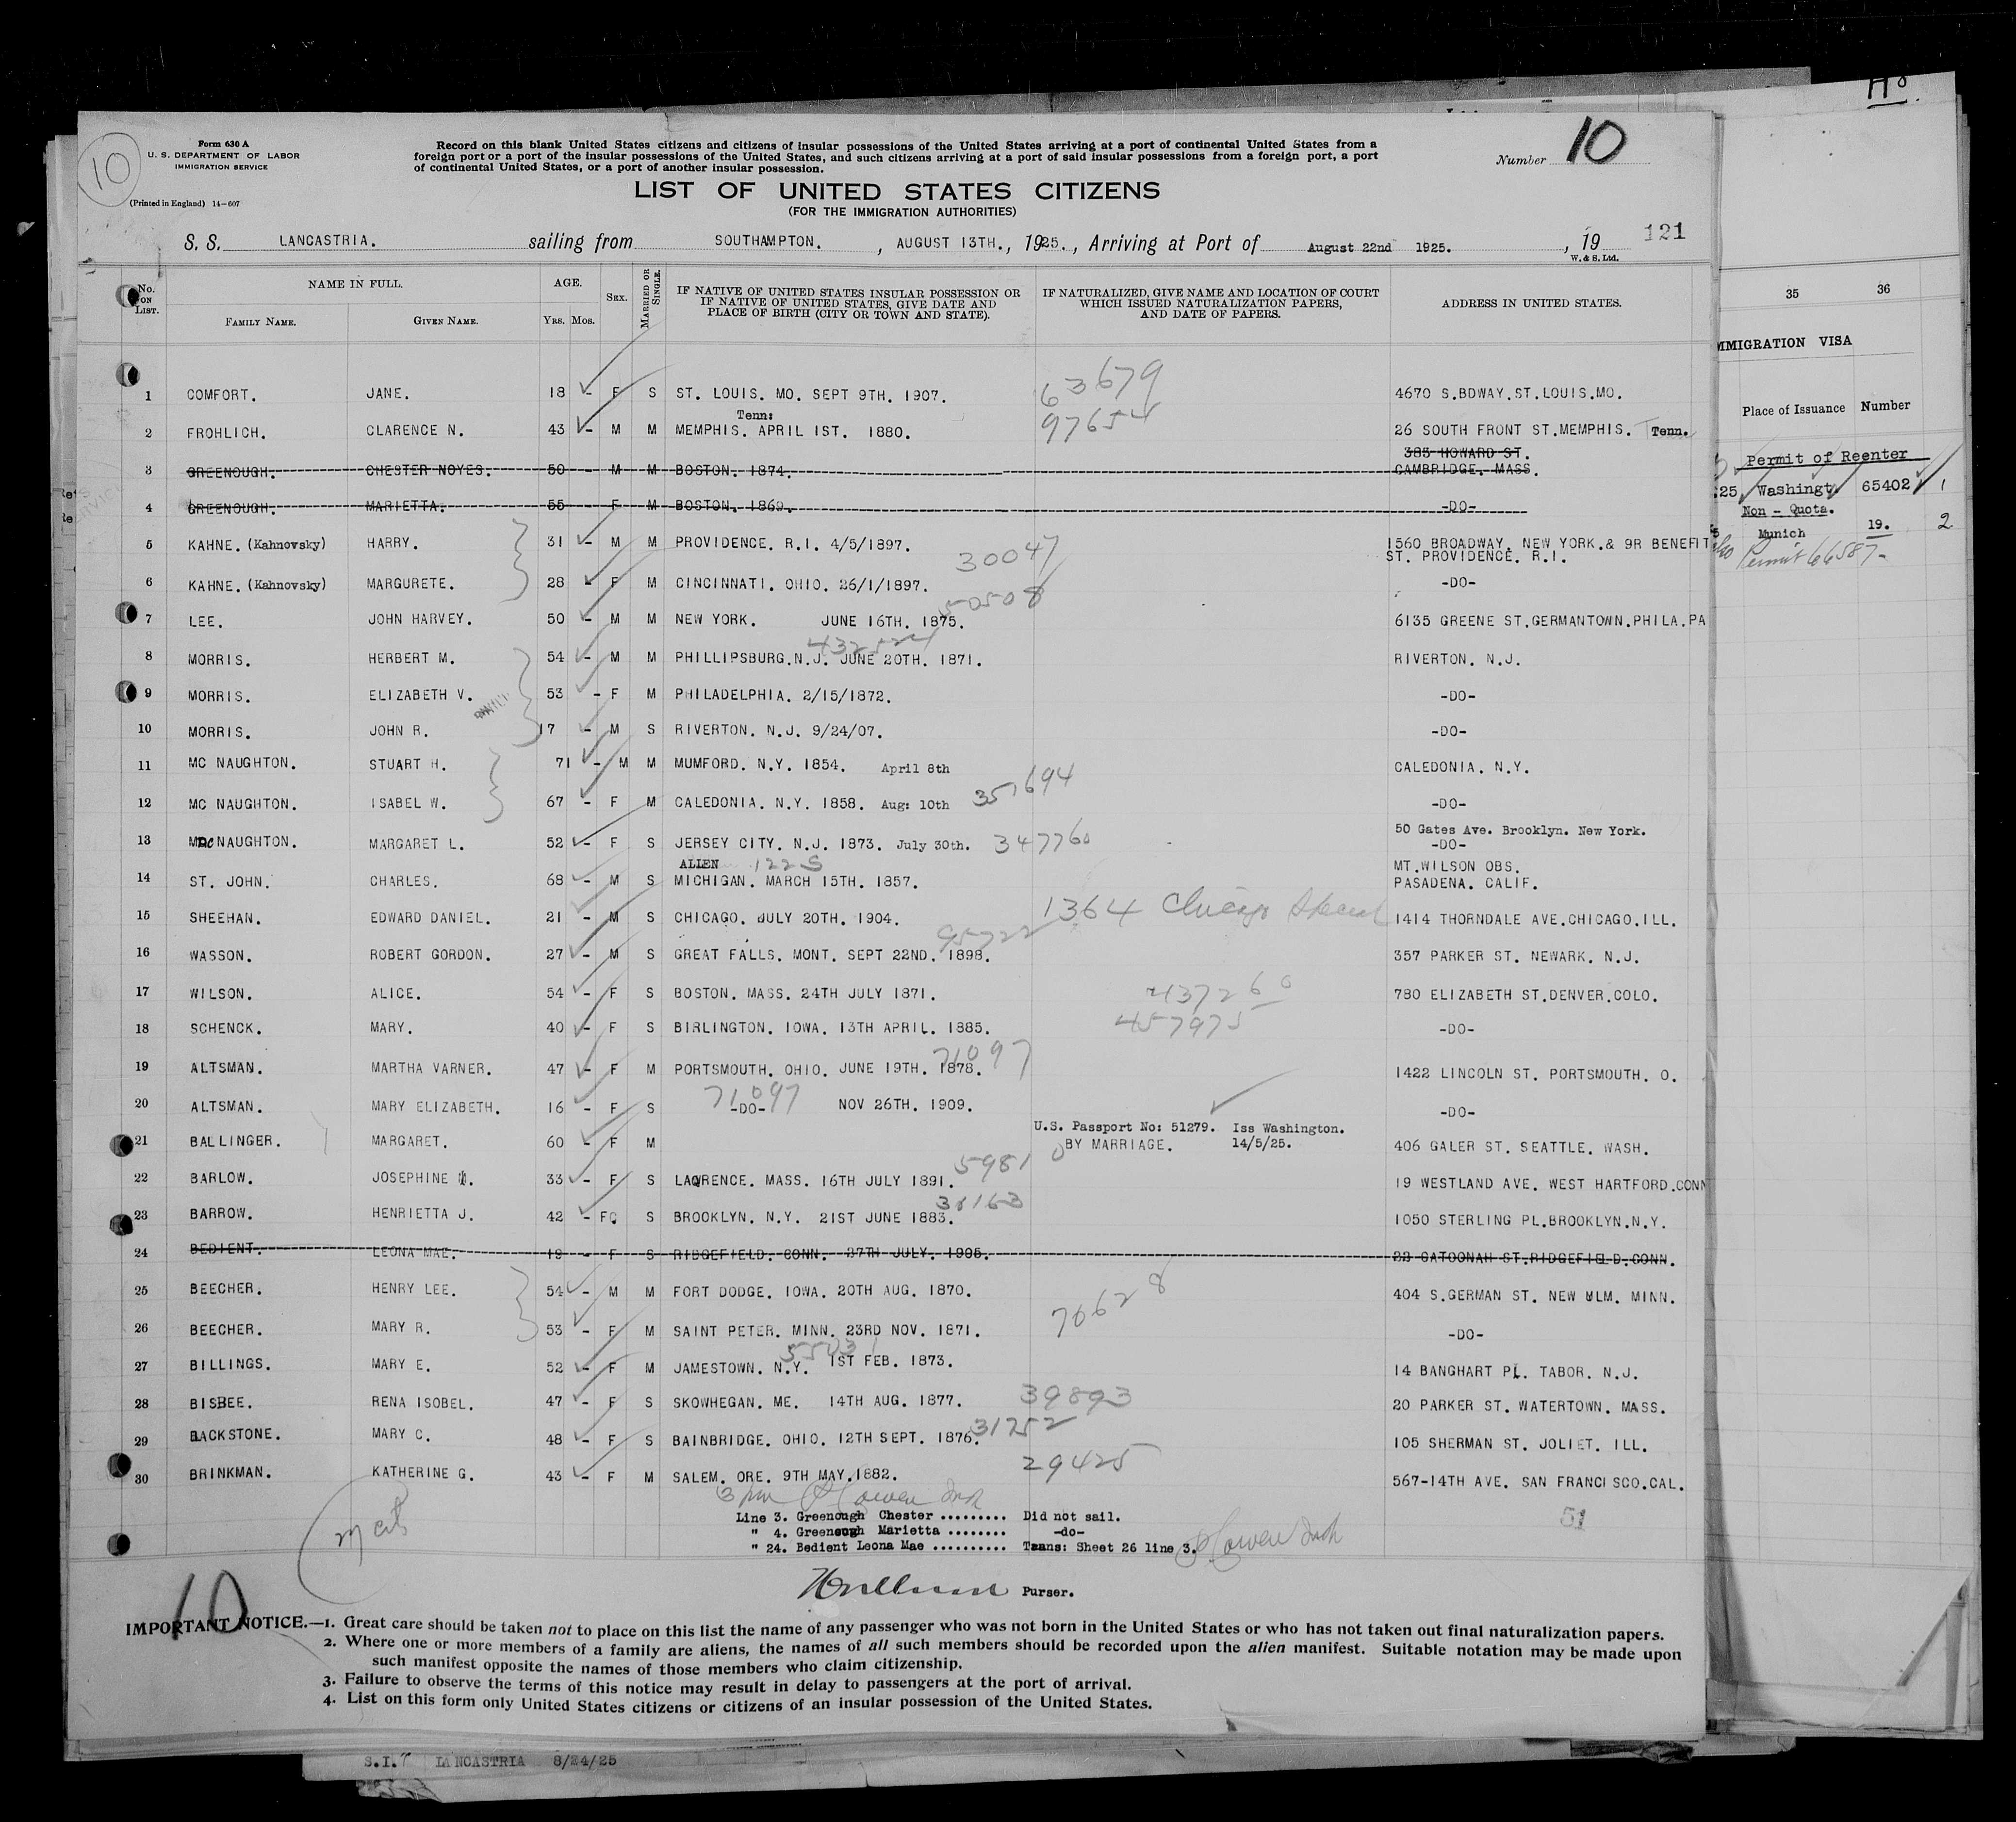 H8.
10
Form 630 A
U. S. DEPARTMENT OF LABOR
IMMIGRATION SERVICE
(Printed in England) 14-607
Record on this blank United States citizens and citizens of insular possessions of the United States arriving at a port of continental United States from a
foreign port or a port of the insular possessions of the United States, and such citizens arriving at a port of said insular possessions from a foreign port, a port
of continental United States, or a port of another insular possession.
Number 10
LIST OF UNITED STATES CITIZENS
(FOR THE IMMIGRATION AUTHORITIES)
S. S. LANCASTRIA. sailing from SOUTHAMPTON. , AUGUST 13TH., 1925. , Arriving at Port of August 22nd 1925. , 19 121
W. & S. Ltd.
No. ON LIST. NAME IN FULL. FAMILY NAME. GIVEN NAME. AGE. YRS. MOS. SEX. MARRIED OR SINGLE. IF NATIVE OF UNITED STATES INSULAR POSSESSION OR IF NATIVE OF UNITED STATES, GIVE DATE AND PLACE OF BIRTH (CITY OR TOWN AND STATE). IF NATURALIZED, GIVE NAME AND LOCATION OF COURT WHICH ISSUED NATURALIZATION PAPERS, AND DATE OF PAPERS. ADDRESS IN UNITED STATES.
1 COMFORT. JANE. 18 - F S ST. LOUIS. MO. SEPT 9TH. 1907. 63679 4670 S.BDWAY.ST.LOUIS.MO.
Tenn:
2 FROHLICH. CLARENCE N. 43 - M M MEMPHIS. APRIL 1ST. 1880. 97654 26 SOUTH FRONT ST.MEMPHIS. Tenn.
385 HOWARD ST.
3 GREENOUGH. CHESTER NOYES. 50 - M M BOSTON. 1874. CAMBRIDGE. MASS.
4 GREENOUGH. MARIETTA. 55 - F M BOSTON. 1869. -DO-
5 KAHNE. (Kahnovsky) HARRY. 31 - M M PROVIDENCE. R.I. 4/5/1897. 30047 1560 BROADWAY. NEW YORK.& 9R BENEFIT
ST. PROVIDENCE. R.I.
6 KAHNE. (Kahnovsky) MARGURETE. 28 - F M CINCINNATI. OHIO. 26/1/1897. -DO-
50508
7 LEE. JOHN HARVEY. 50 - M M NEW YORK. JUNE 16TH. 1875. 6135 GREENE ST.GERMANTOWN.PHILA.PA
8 MORRIS. HERBERT M. 54 - M M PHILLIPSBURG.N.J. JUNE 20TH. 1871. RIVERTON. N.J.
9 MORRIS. ELIZABETH V. 53 - F M PHILADELPHIA. 2/15/1872. -DO-
10 MORRIS. JOHN R. 17 - M S RIVERTON. N.J. 9/24/07. -DO-
11 MC NAUGHTON. STUART H. 71 - M M MUMFORD. N.Y. 1854. April 8th CALEDONIA. N.Y.
12 MC NAUGHTON. ISABEL W. 67 - F M CALEDONIA. N.Y. 1858. Aug: 10th 351694 -DO-
50 Gates Ave. Brooklyn. New York.
13 McNAUGHTON. MARGARET L. 52 - F S JERSEY CITY. N.J. 1873. July 30th. 347760 -DO-
ALIEN 122 S MT.WILSON OBS.
14 ST. JOHN. CHARLES. 68 - M S MICHIGAN. MARCH 15TH. 1857. PASADENA. CALIF.
15 SHEEHAN. EDWARD DANIEL. 21 - M S CHICAGO. JULY 20TH. 1904. 1364 Chicago Special 1414 THORNDALE AVE.CHICAGO.ILL.
95722
16 WASSON. ROBERT GORDON. 27 - M S GREAT FALLS. MONT. SEPT 22ND. 1898. 357 PARKER ST. NEWARK. N.J.
17 WILSON. ALICE. 54 - F S BOSTON. MASS. 24TH JULY 1871. 437260 780 ELIZABETH ST.DENVER.COLO.
18 SCHENCK. MARY. 40 - F S BIRLINGTON. IOWA. 13TH APRIL. 1885. 457975 -DO-
71097
19 ALTSMAN. MARTHA VARNER. 47 - F M PORTSMOUTH. OHIO. JUNE 19TH. 1878. 1422 LINCOLN ST. PORTSMOUTH. O.
71097
20 ALTSMAN. MARY ELIZABETH. 16 - F S -DO- NOV 26TH. 1909. -DO-
U.S. Passport No: 51279. Iss Washington.
21 BALLINGER. MARGARET. 60 - F M BY MARRIAGE. 14/5/25. 406 GALER ST. SEATTLE. WASH.
59810
22 BARLOW. JOSEPHINE M. 33 - F S LAWRENCE. MASS. 16TH JULY 1891. 19 WESTLAND AVE. WEST HARTFORD.CONN
38163
23 BARROW. HENRIETTA J. 42 - F S BROOKLYN. N.Y. 21ST JUNE 1883. 1050 STERLING PL.BROOKLYN.N.Y.
24 BEDIENT. LEONA MAE. 19 - F S RIDGEFIELD. CONN. 27TH JULY. 1905. 22 CATOONAH ST.RIDGEFIELD.CONN.
25 BEECHER. HENRY LEE. 54 - M M FORT DODGE. IOWA. 20TH AUG. 1870. 70628 404 S.GERMAN ST. NEW ULM. MINN.
26 BEECHER. MARY R. 53 - F M SAINT PETER. MINN. 23RD NOV. 1871. -DO-
55031
27 BILLINGS. MARY E. 52 - F M JAMESTOWN. N.Y. 1ST FEB. 1873. 14 BANGHART PL. TABOR. N.J.
28 BISBEE. RENA ISOBEL. 47 - F S SKOWHEGAN. ME. 14TH AUG. 1877. 39893 20 PARKER ST. WATERTOWN. MASS.
31752
29 BLACKSTONE. MARY C. 48 - F S BAINBRIDGE. OHIO. 12TH SEPT. 1876. 105 SHERMAN ST. JOLIET. ILL.
30 BRINKMAN. KATHERINE G. 43 - F M SALEM. ORE. 9TH MAY.1882. 29425 567-14TH AVE. SAN FRANCISCO.CAL.
Line 3. Greenough Chester ......... Did not sail.
" 4. Greenough Marietta ........ -do-
" 24. Bedient Leona Mae .......... Trans: Sheet 26 line 3.
51
Purser.
10
IMPORTANT NOTICE.—1. Great care should be taken not to place on this list the name of any passenger who was not born in the United States or who has not taken out final naturalization papers.
2. Where one or more members of a family are aliens, the names of all such members should be recorded upon the alien manifest. Suitable notation may be made upon
such manifest opposite the names of those members who claim citizenship.
3. Failure to observe the terms of this notice may result in delay to passengers at the port of arrival.
4. List on this form only United States citizens or citizens of an insular possession of the United States.
S.I. LANCASTRIA 8/24/25
35 36
IMMIGRATION VISA
Place of Issuance Number
Permit of Reenter
25 Washingt. 65402 1
Non - Quota.
Munich 19. 2
Permit 66587